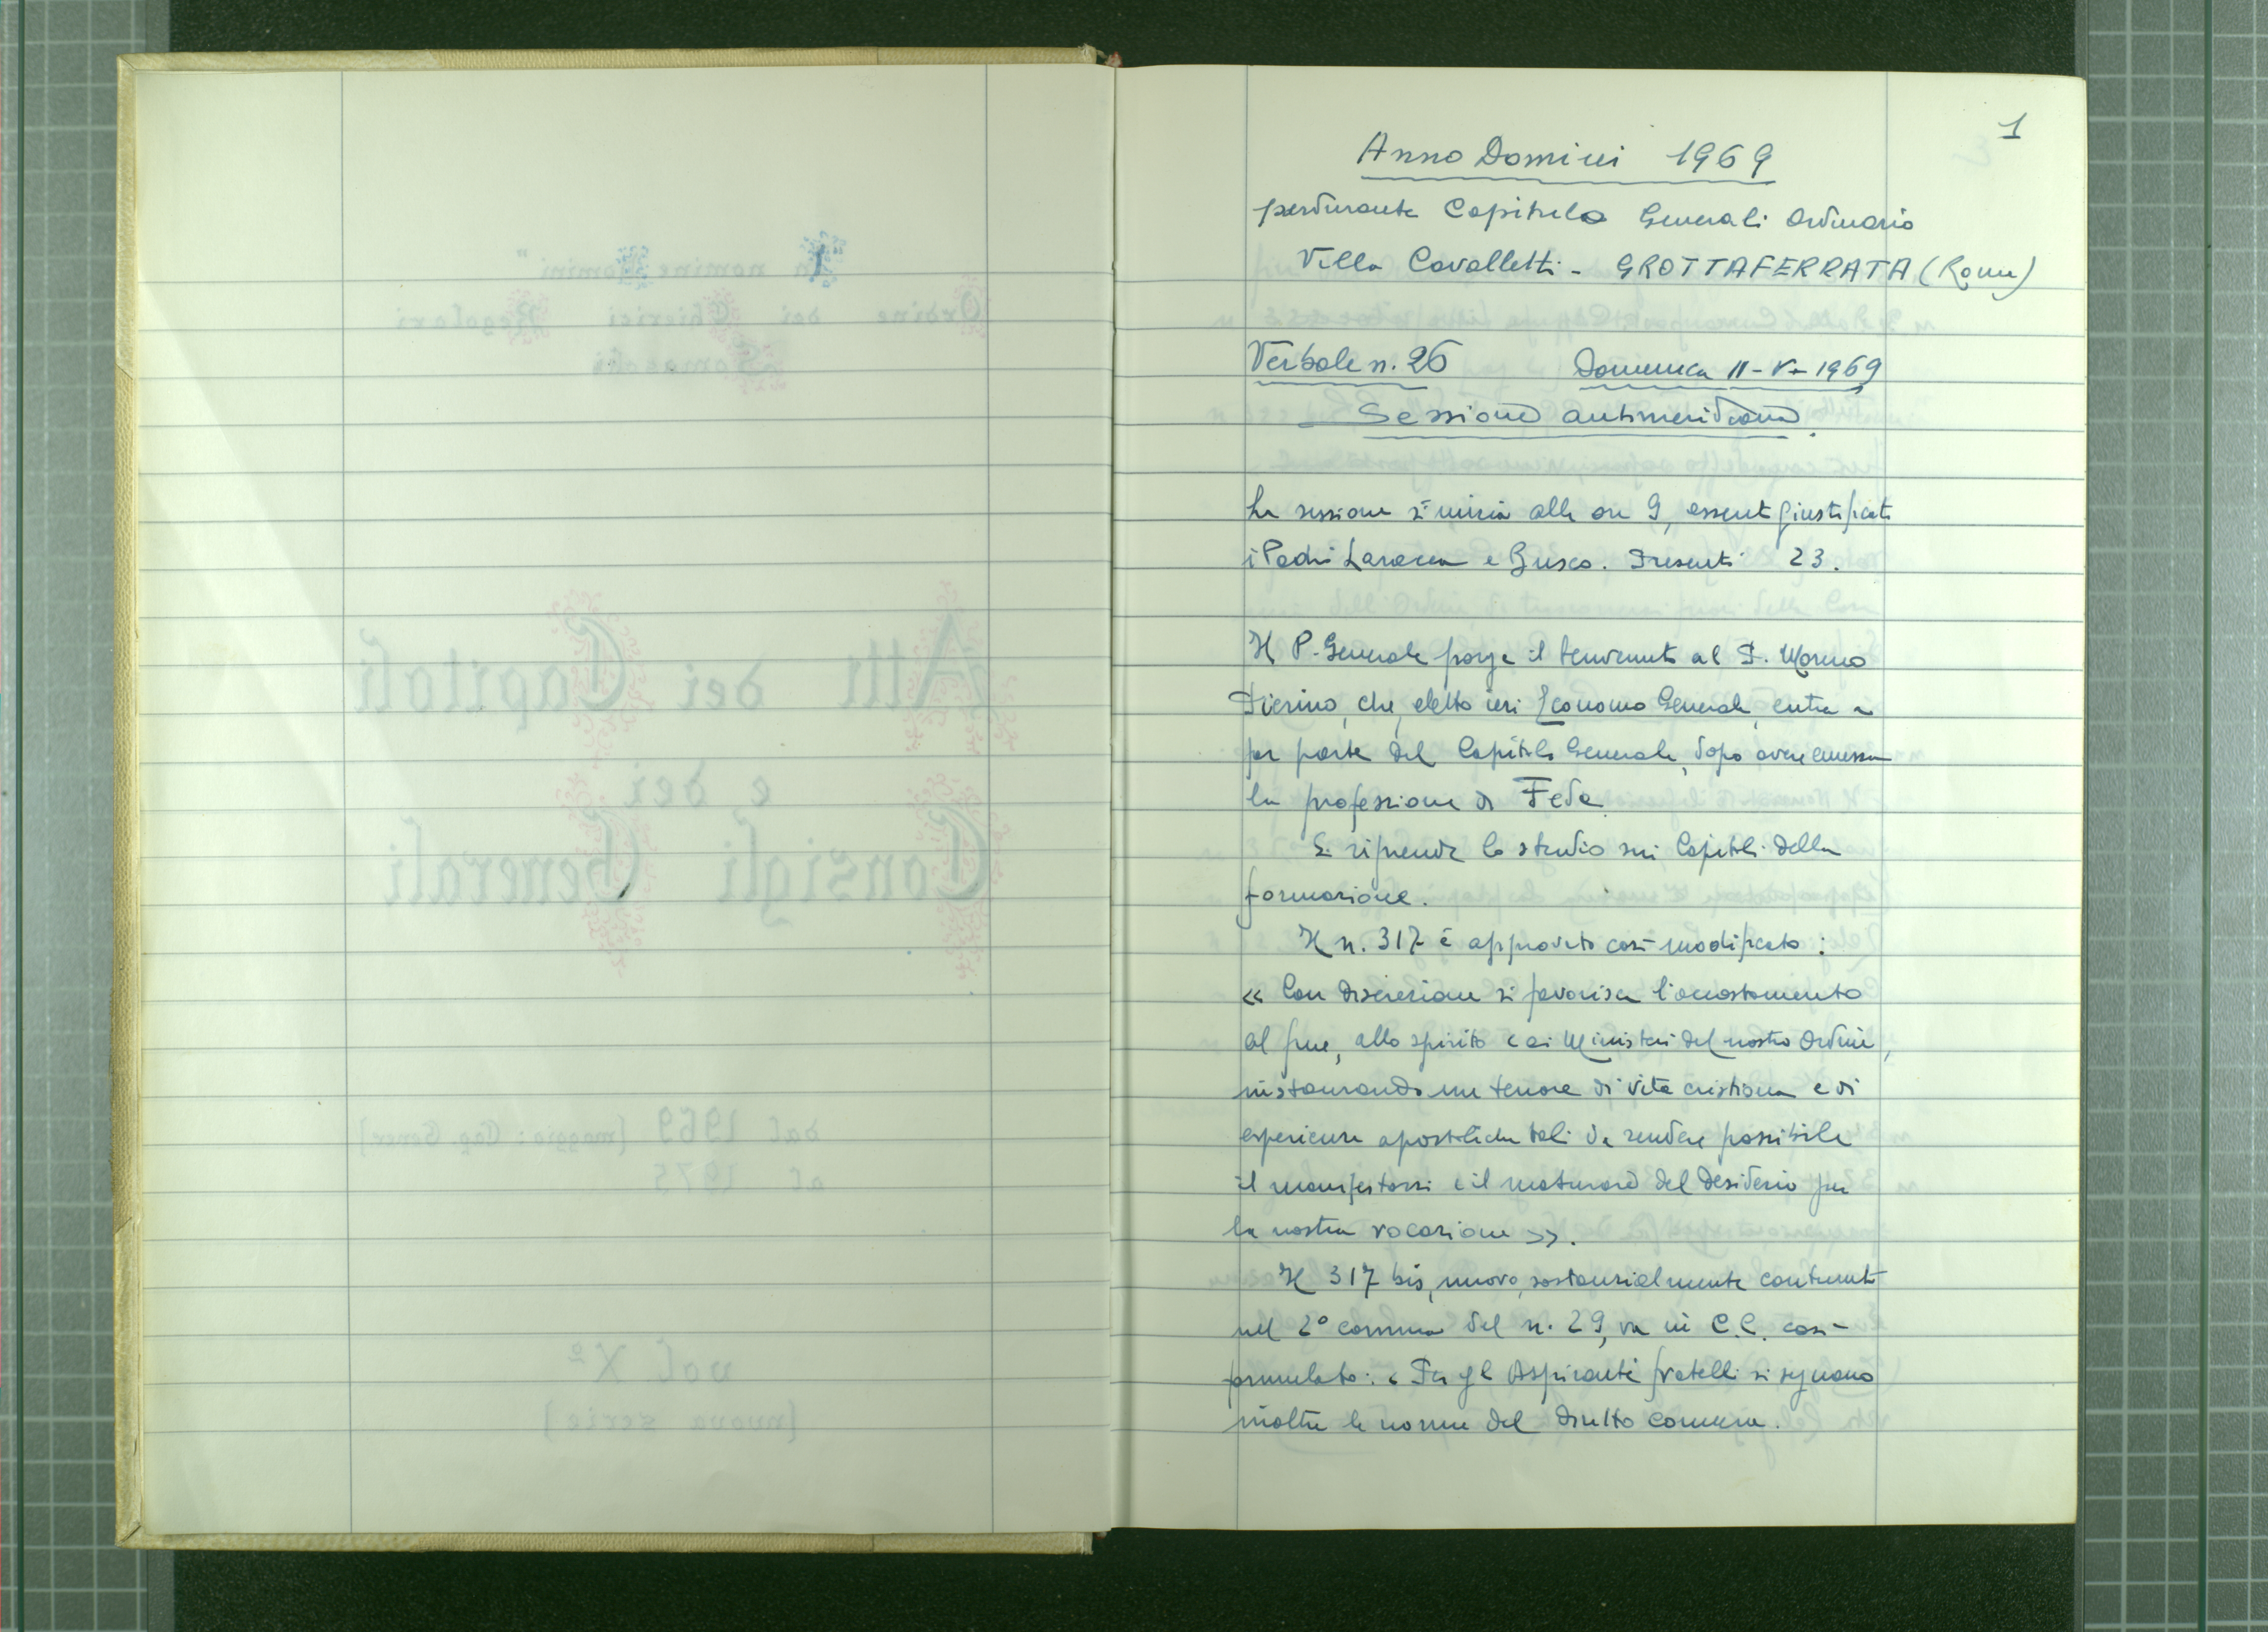 1
Anno Domini 1969
perdurante Capitulo Generali Ordinario
Villa Cavalletti - GROTTAFERRATA (Roma)
Verbale n. 26 Domenica 11-V-1969
Sessione antimeridiana.
La sessione si inizia alle ore 9, assenti giustificati
i Padri Laracca e Busco. Presenti 23.
Il P. Generale porge il benvenuto al P. Moreno
Pierino, che, eletto ieri Economo Generale, entra a
far parte del Capitolo Generale, dopo avere emessa
la professione di Fede.
Si riprende lo studio sui Capitoli della
formazione.
Il n. 317 è approvato così modificato:
« Con discrezione si favorisca l'accostamento
al fine, allo spirito e ai Ministeri del nostro Ordine,
instaurando un tenore di vita cristiana e di
esperienze apostoliche tali da rendere possibile
il manifestarsi e il maturare del desiderio per
la nostra vocazione ».
Il 317 bis, nuovo, sostanzialmente contenuto
nel 2º comma del n. 29, va in C.C. così
formulato: « Per gli Aspiranti fratelli si seguano
inoltre le norme del diritto comune.
"In nomine Domini"
Ordine dei Chierici Regolari
Somaschi
Atti dei Capitoli
e dei
Consigli Generali
dal 1969 [maggio: Cap. Gener]
al 1975
vol Xº
[nuova serie]